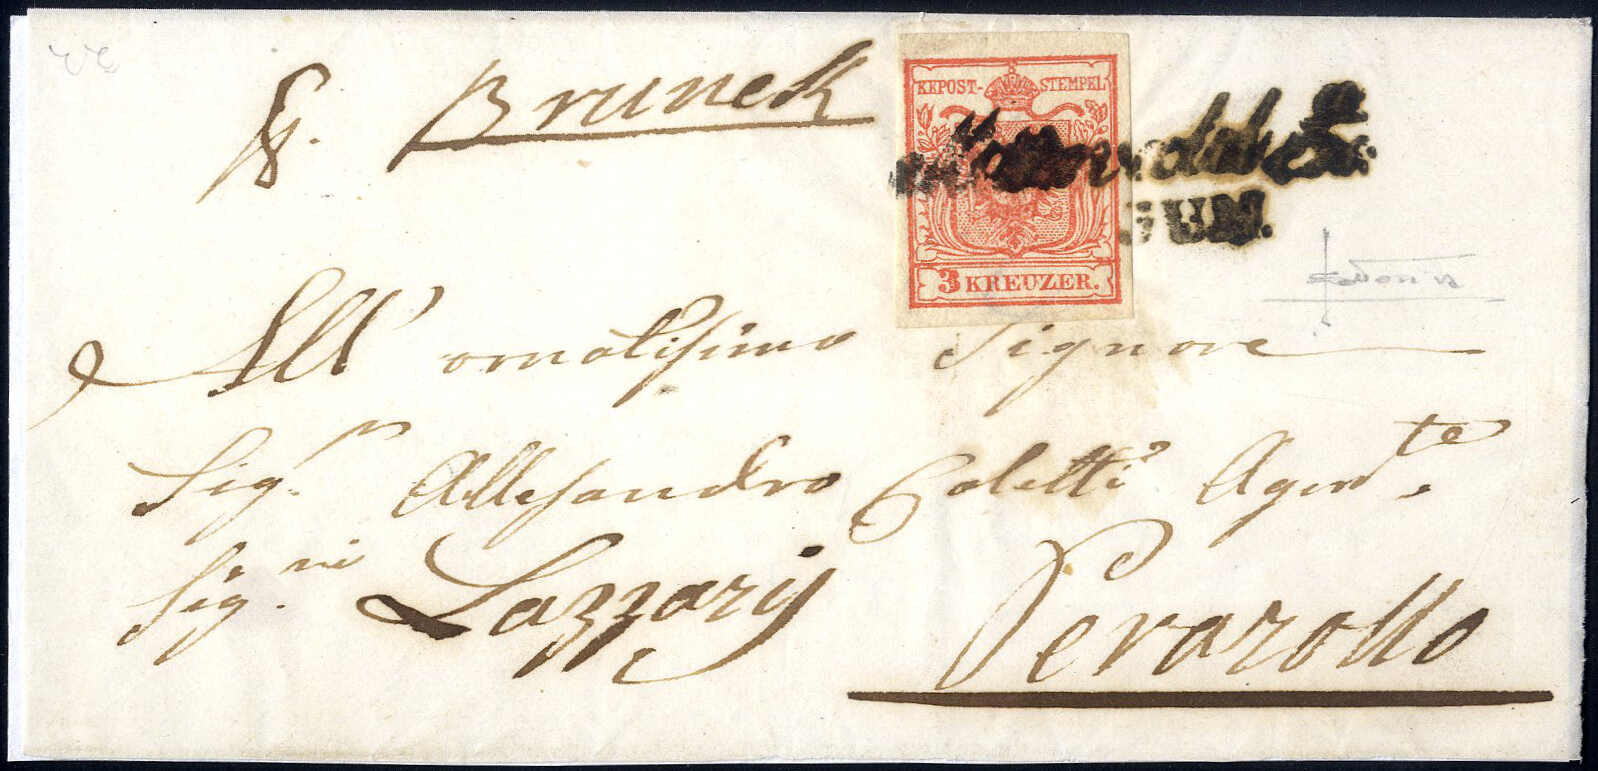 Bruneck
KKPOST-STEMPEL
GIUN.
3 KREUZER.
All' ornatissimo Signore
Sigr. Allessandro Coletti Agente.
Signi. Lazzarij
Perarollo